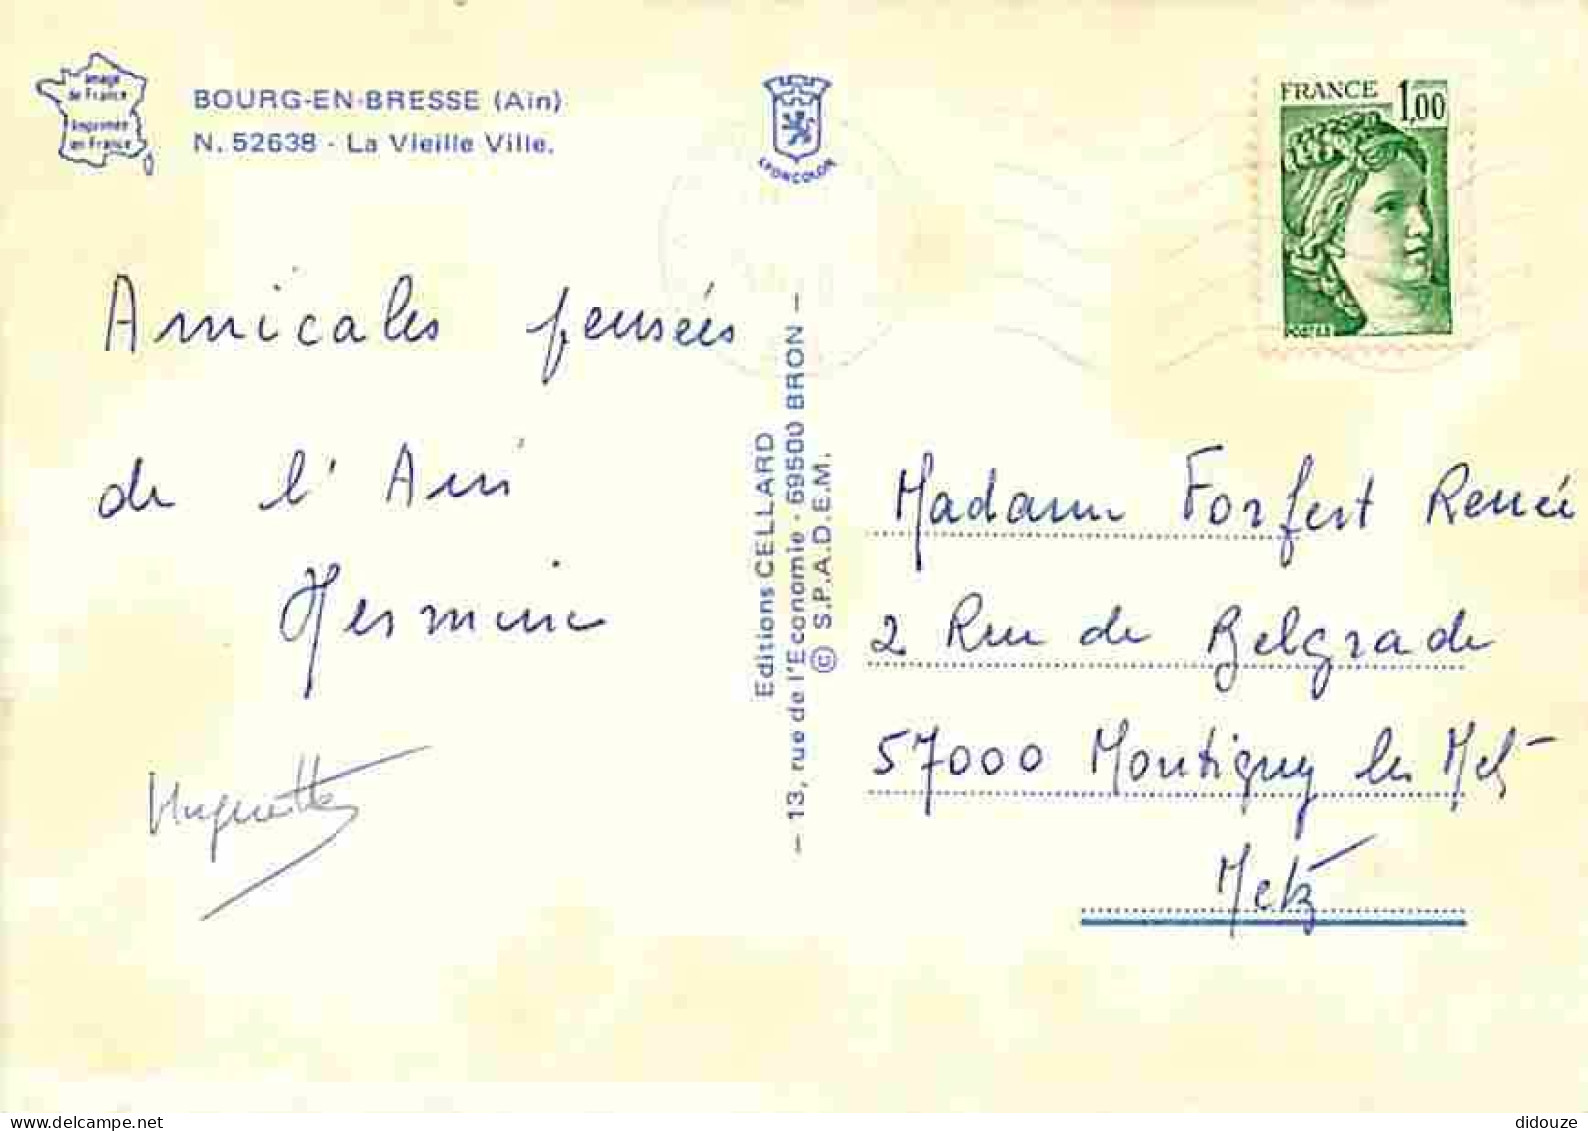 Image
de France
Imprimée
en France
BOURG-EN-BRESSE (Ain)
N. 52638 - La Vieille Ville.
LYONCOLOR
FRANCE 1,00
POSTES
Amicales pensées
de l'Ain
Hermine
Huguette
Editions CELLARD
— 13, rue de l'Economie - 69500 BRON —
© S.P.A.D.E.M.
Madame Forfert Renée
2 Rue de Belgrade
57000 Montigny les Metz
Metz
delcampe.net
didouze